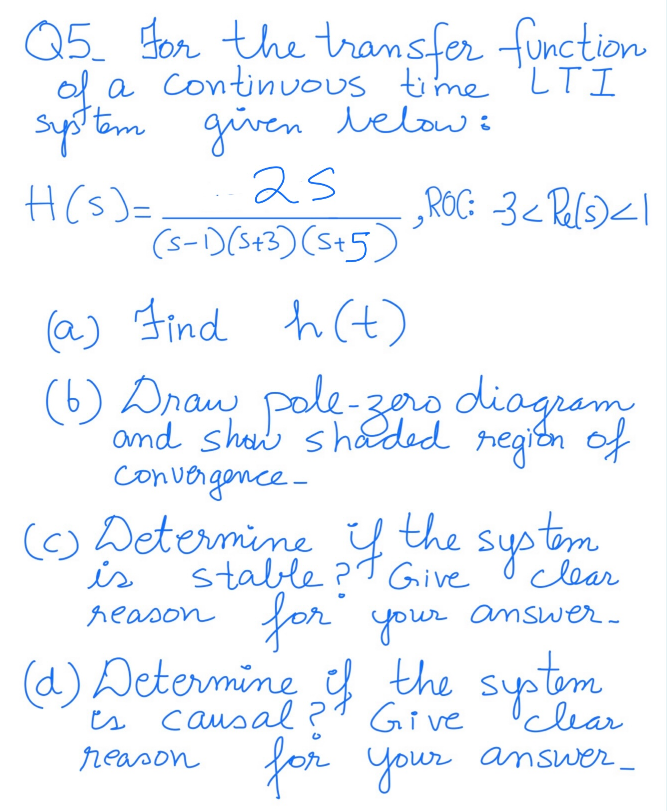 Q5_ For the transfer function
of a continuous time LTI
system given below:
H(s)= 2s / (s-1)(s+3)(s+5) , ROC: -3<Re(s)<1
(a) Find h(t)
(b) Draw pole-zero diagram
and show shaded region of
convergence_
(c) Determine if the system
is stable? Give clear
reason for your answer_
(d) Determine if the system
is causal? Give clear
reason for your answer_